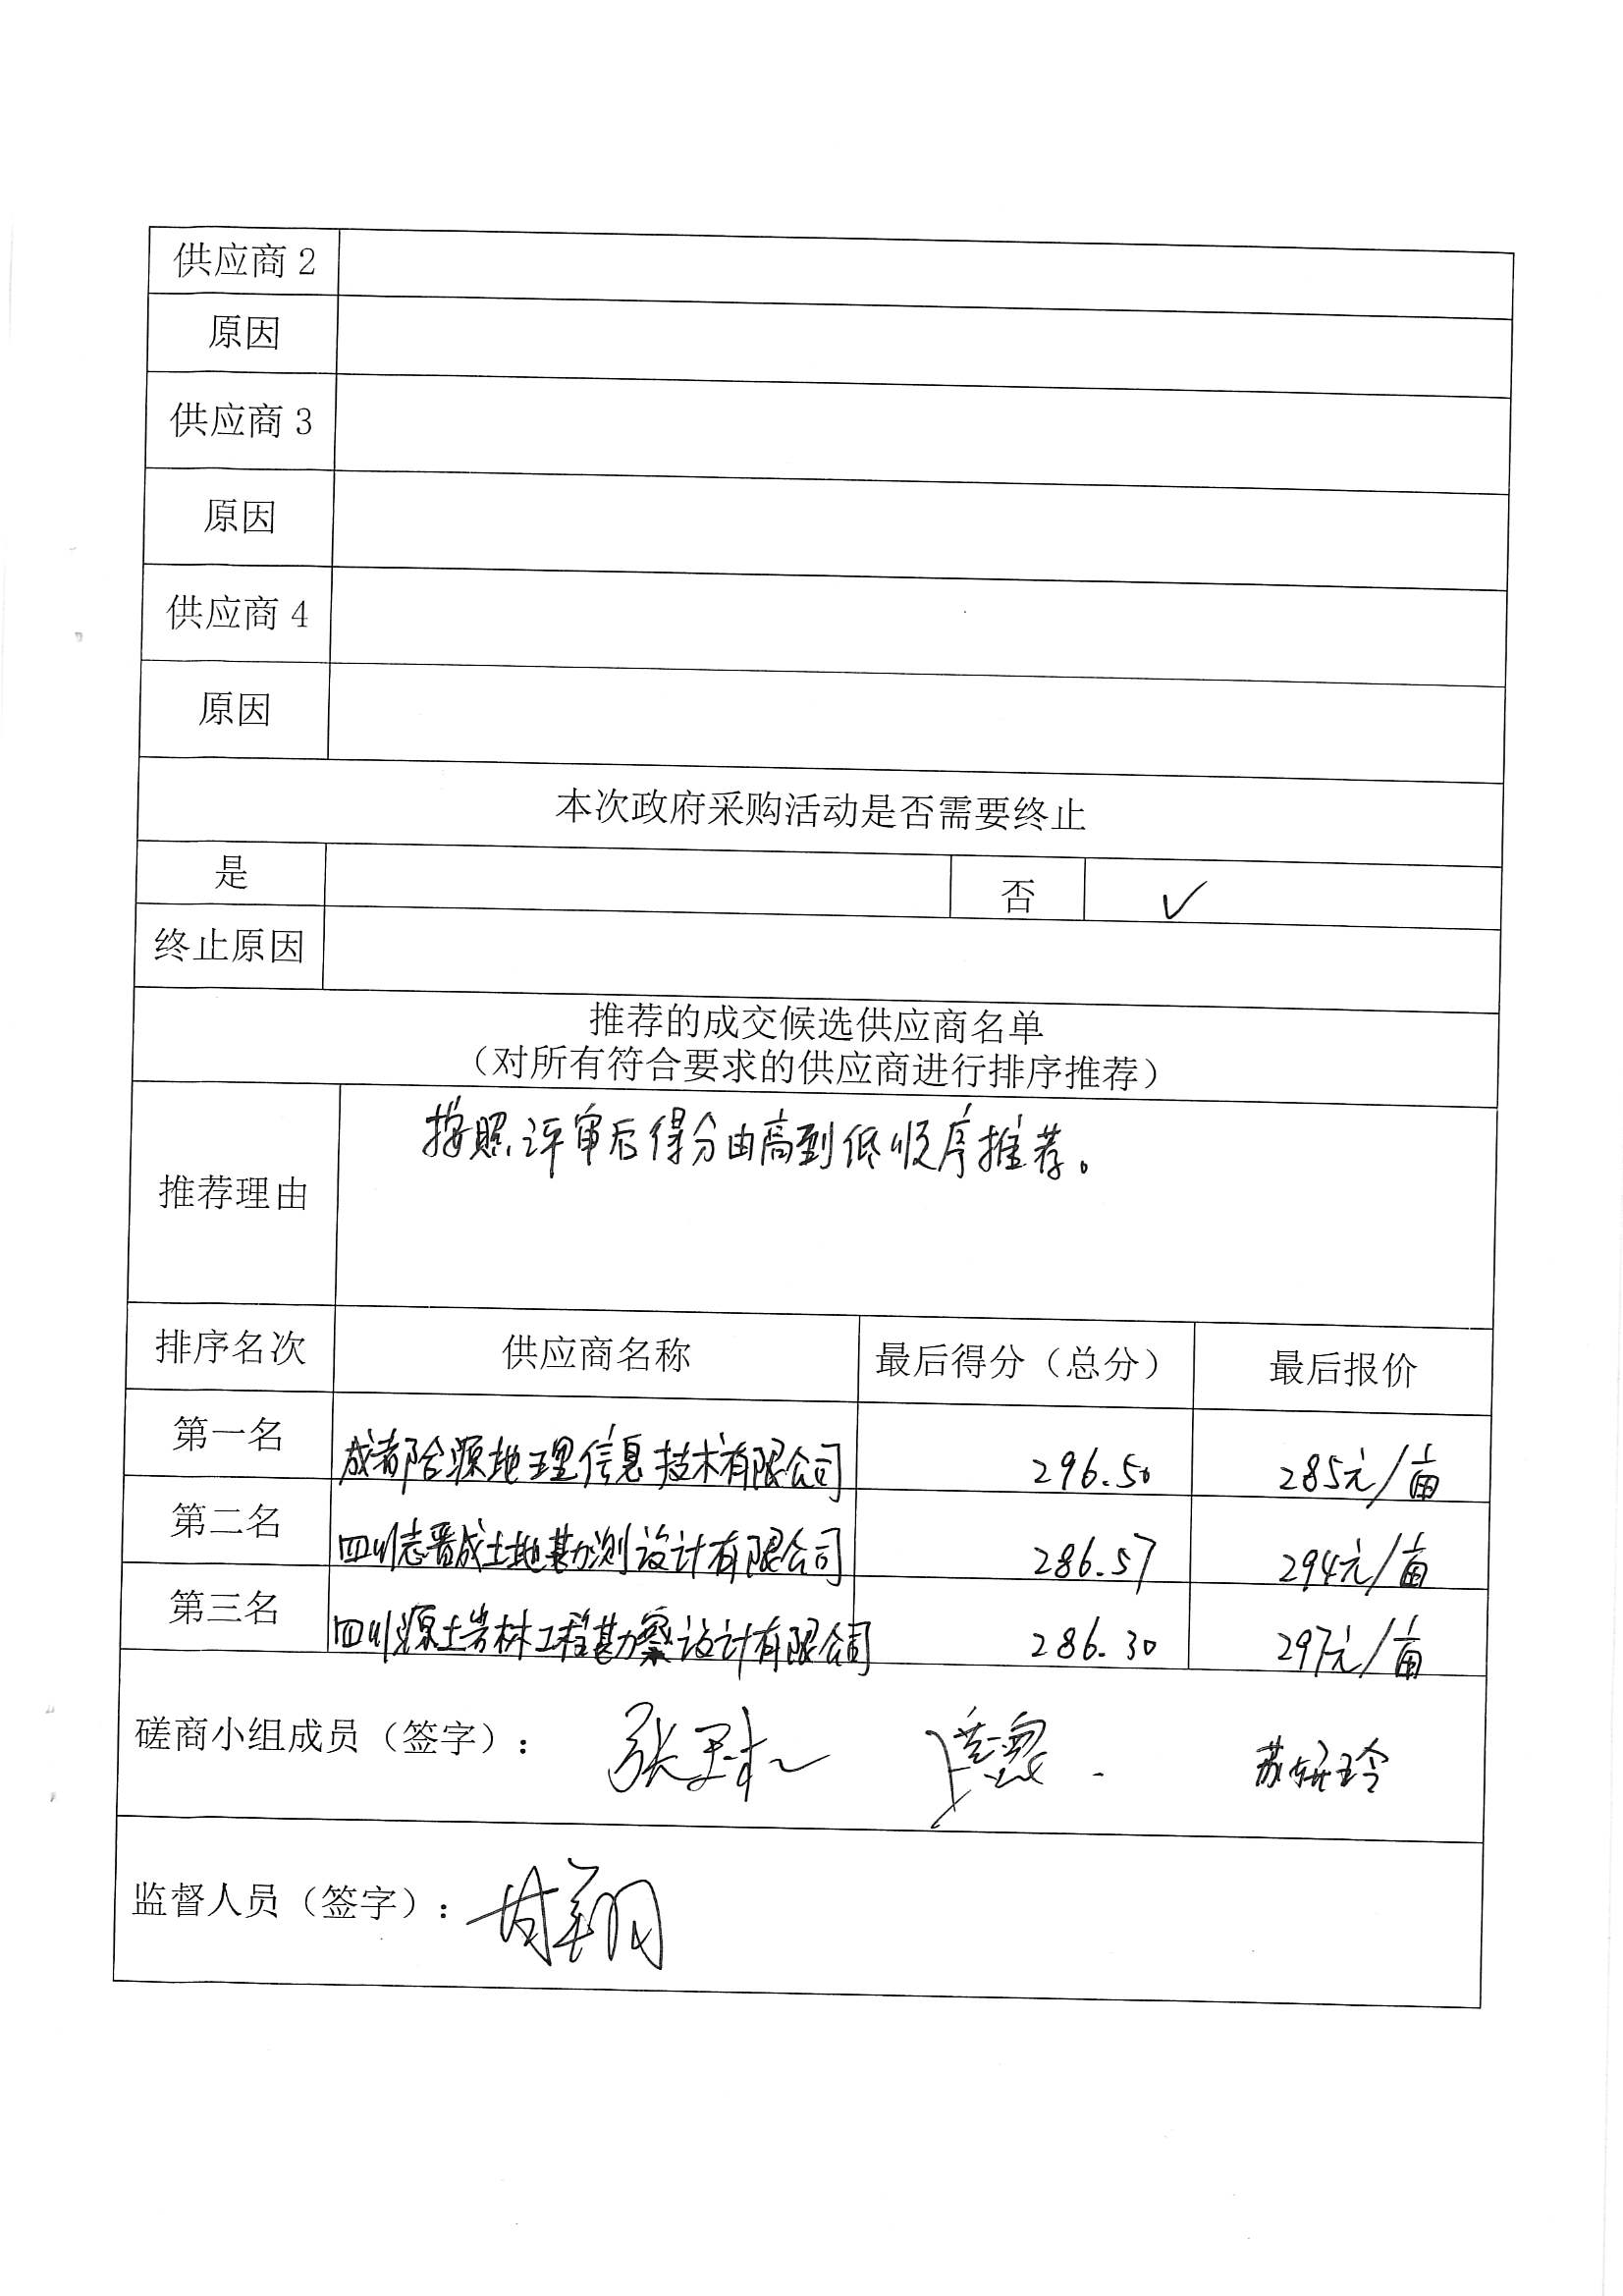 供应商2
原因
供应商3
原因
供应商4
原因
本次政府采购活动是否需要终止
是 否 ✓
终止原因
推荐的成交候选供应商名单
（对所有符合要求的供应商进行排序推荐）
推荐理由 按照评审后得分由高到低顺序推荐。
排序名次 供应商名称 最后得分（总分） 最后报价
第一名 成都合源地理信息技术有限公司 296.50 285元/亩
第二名 四川志晋成土地勘测设计有限公司 286.57 294元/亩
第三名 四川源土岩林工程勘察设计有限公司 286.30 297元/亩
磋商小组成员（签字）：
监督人员（签字）：甘翔